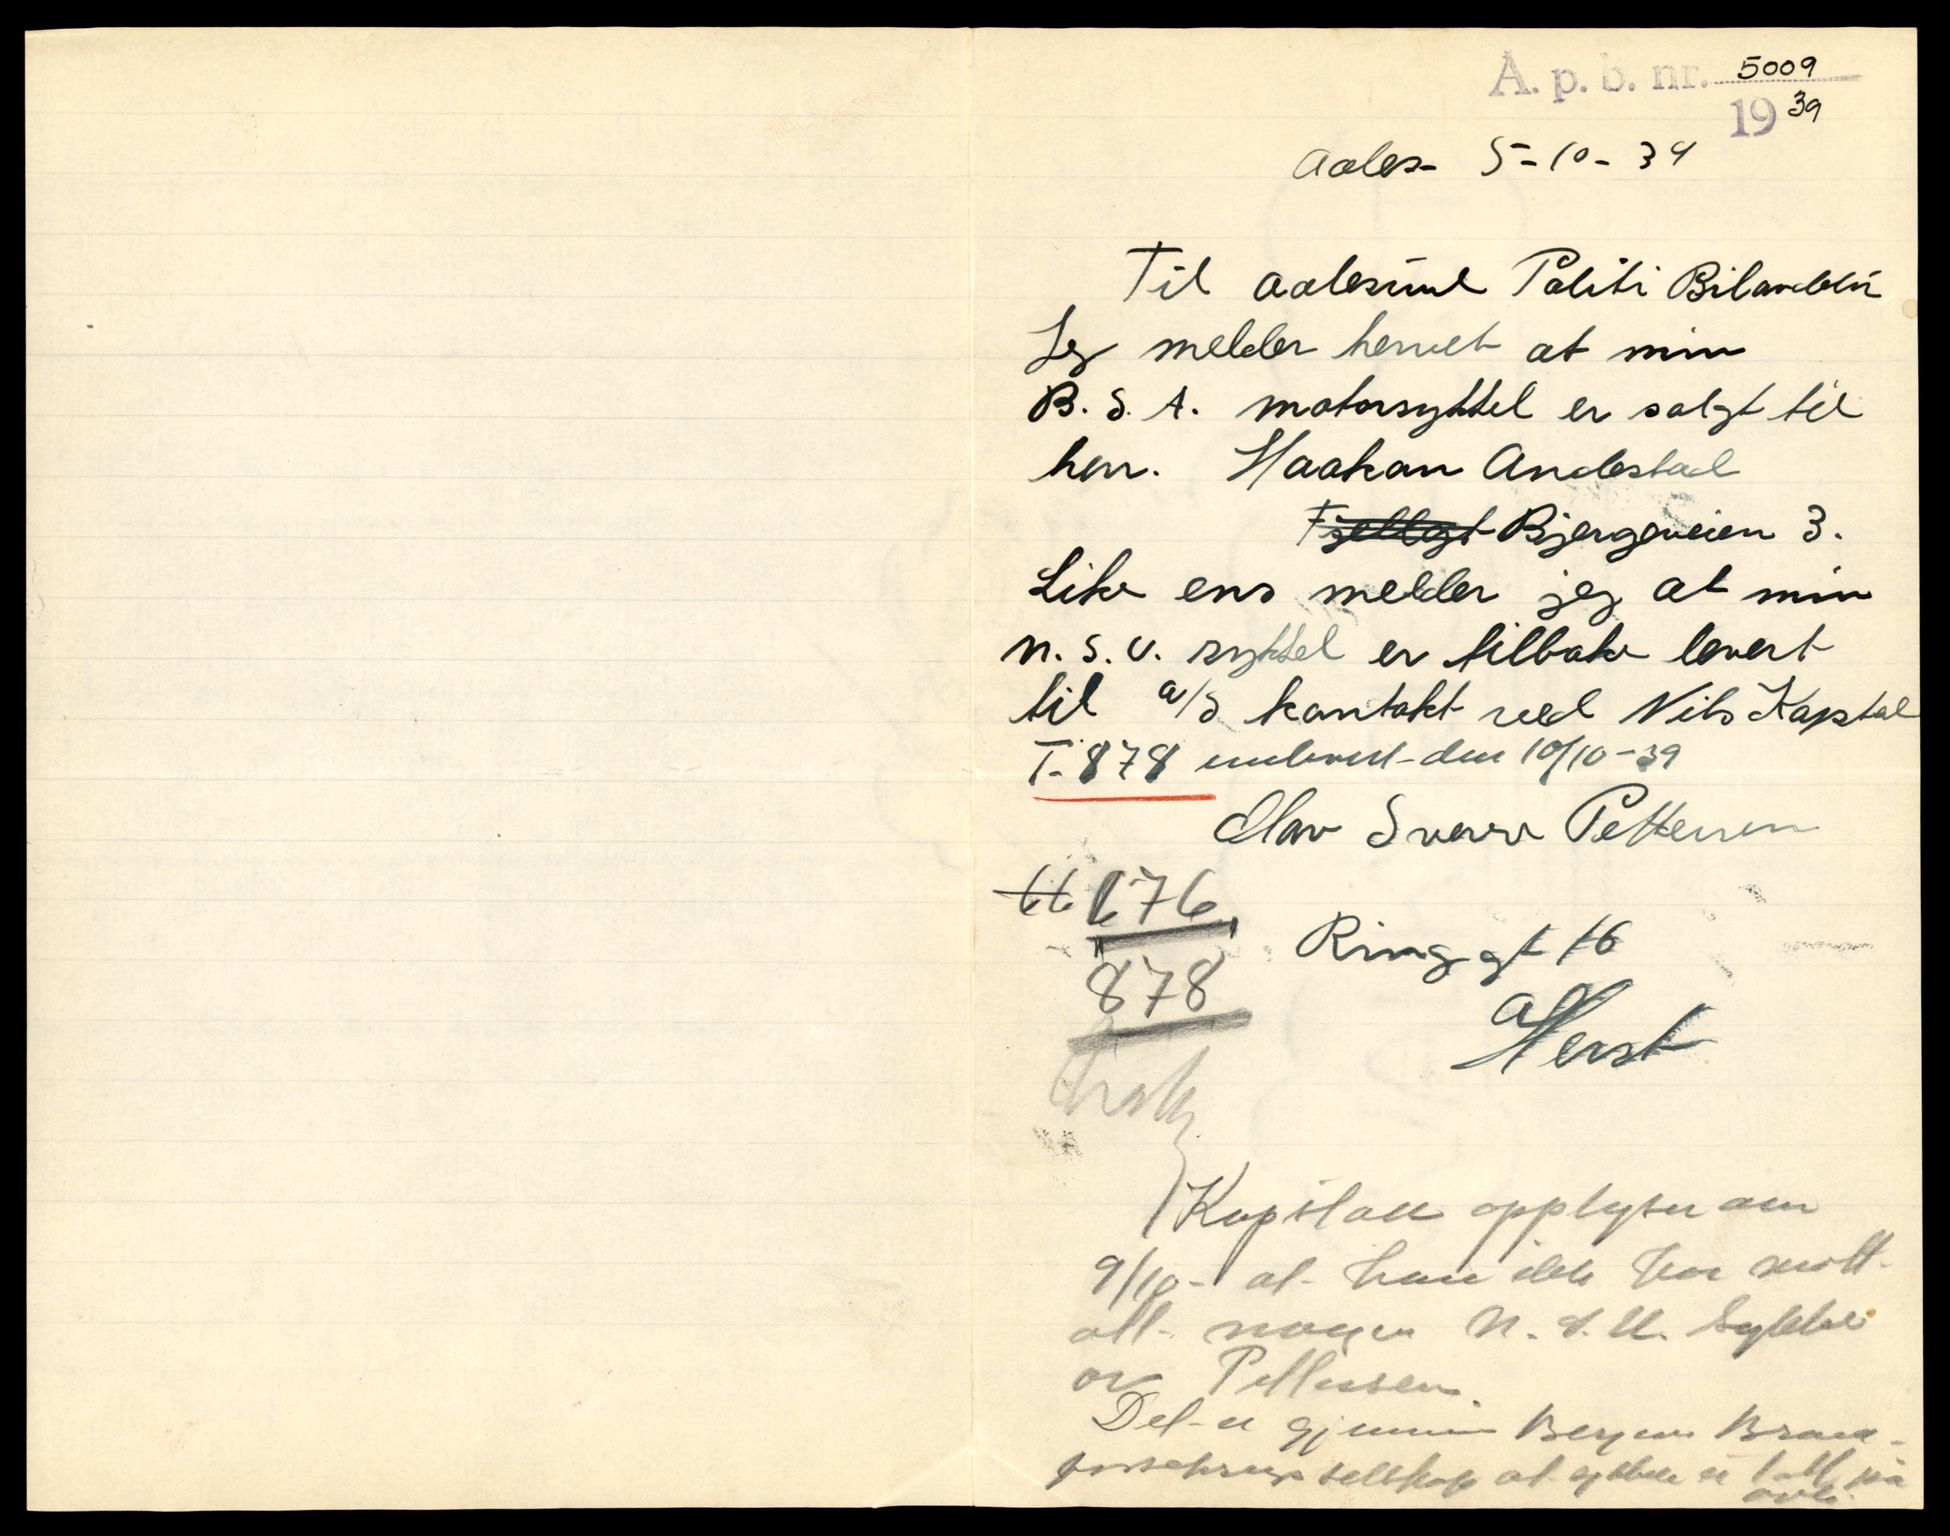 A. p. b. nr. 5009
19 39
Aales- 5-10-39
Til Aalesund Politi Bilavdeln
Jeg melder herved at min
B. S. A. motorsykkel er solgt til
herr. Haakon Andestad
Fjellgt Bjørgeveien 3.
Like ens melder jeg at min
N. S. U. sykkel er tilbake levert
til A/S kontakt ved Nils Kapstad
T-878 innlevert den 10/10-39
Olav Sverre Pettersen
676
878
Ring gt 16
Kapstad opplyser den
9/10- at han ikke har mott-
att nogen N. S. U. sykkel
av Pettersen.
Det er gjennem Bergens Brand-
forsikrings selskap at sykkelen er tatt